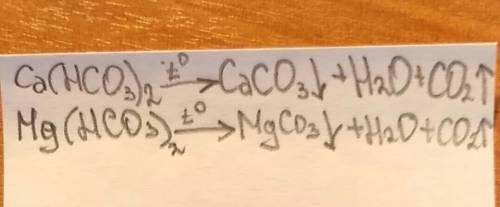 Ca(HCO3)2 t° → CaCO3↓ + H2O + CO2↑
Mg(HCO3)2 t° → MgCO3↓ + H2O + CO2↑